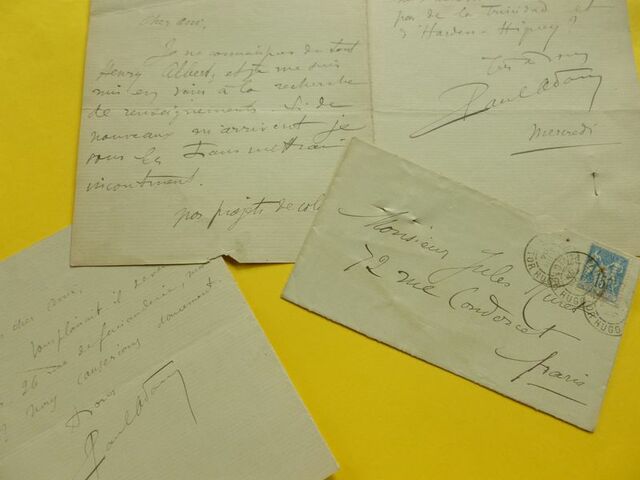 Cher ami,
Je ne connais pas du tout
Henry Albert, et je me suis
mis en voies à la recherche
de renseignements. Si de
nouveaux m'arrivent je
vous les transmettrai
incontinent.
nos projets de col
pas de la Trinidad et
d'Harden-Hickey?
Paul Adam
mercredi
Monsieur Jules Huret
72 rue Condorcet
Paris
15
HUGO
cher ami,
vous plairait il
26 rue de
causerions doucement.
à vous
Paul Adam